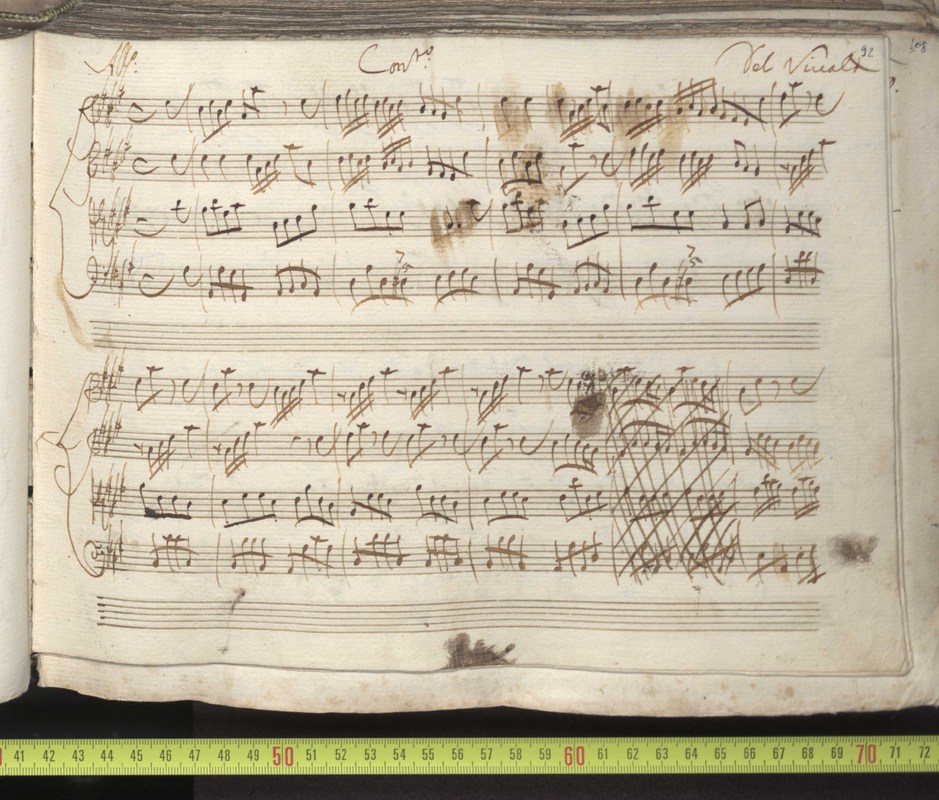 All.° Cont.° Del Vivaldi 92 108
7 5 7 5
41 42 43 44 45 46 47 48 49 50 51 52 53 54 55 56 57 58 59 60 61 62 63 64 65 66 67 68 69 70 71 72